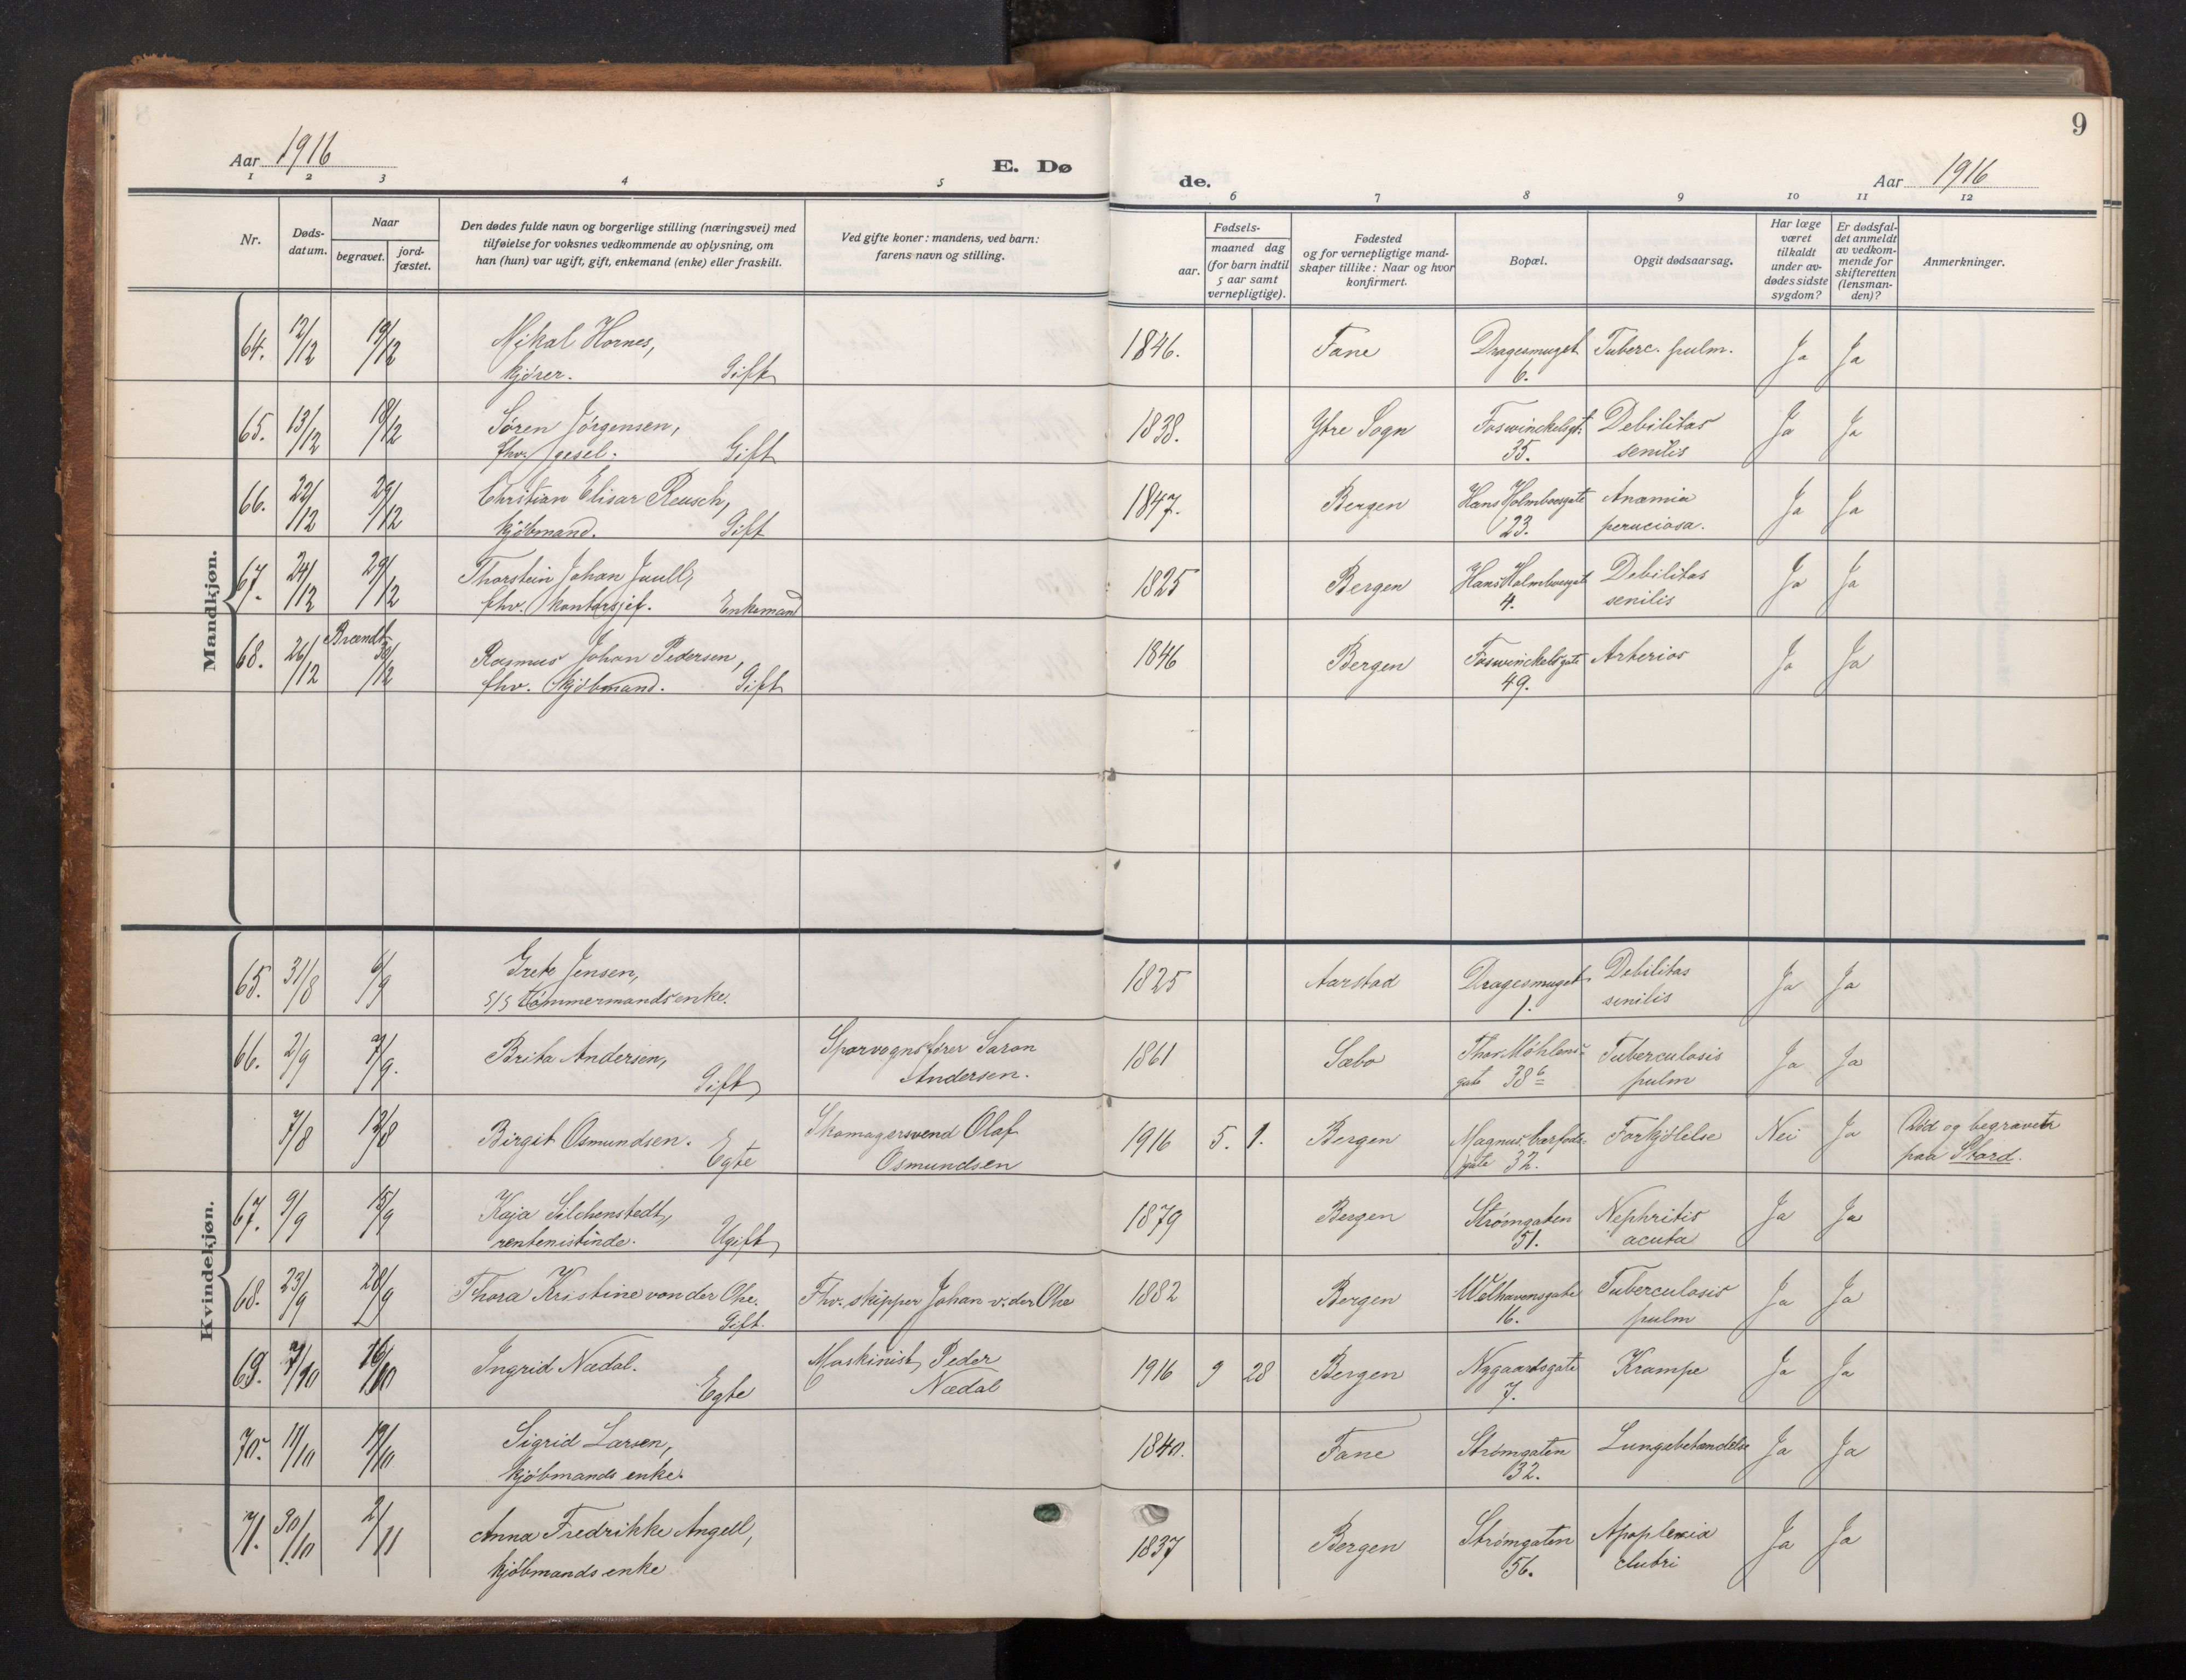 Aar 1916
E. Dø
1 2 3 4 5
Nr.
Døds-
datum.
Naar
begravet.
jord-
fæstet.
Den dødes fulde navn og borgerlige stilling (næringsvei) med
tilføielse for voksnes vedkommende av oplysning, om
han (hun) var ugift, gift, enkemand (enke) eller fraskilt.
Ved gifte koner: mandens, ved barn:
farens navn og stilling.
9
de.
Aar 1916
6 7 8 9 10 11 12
aar.
Fødsels-
maaned dag
(for barn indtil
5 aar samt
vernepligtige).
Fødested
og for vernepligtige mand-
skaper tillike: Naar og hvor
konfirmert.
Bopæl.
Opgit dødsaarsag.
Har læge
været
tilkaldt
under av-
dødes sidste
sygdom?
Er dødsfal-
det anmeldt
av vedkom-
mende for
skifteretten
(lensman-
den)?
Anmerkninger.
Mandkjøn.
64. 12/12 19/12 Mikal Hornes, 1846. Fane Dragesmuget Tuberc. pulm. Ja Ja
kjører. Gift 6.
65. 13/12 18/12 Søren Jørgensen, 1838. Ytre Sogn Foswinckelsgt. Debilitas Ja Ja
fhv. gesel. Gift 35. senilis
66. 22/12 29/12 Christian Elisar Reusch, 1847. Bergen Hans Holmboesgate Anæmia Ja Ja
kjøbmand. Gift 23. perniciosa.
67. 24/12 29/12 Thorstein Johan Juull, 1825 Bergen Hans Holmboesgate Debilitas Ja Ja
fhv. kontorsjef. Enkemand 4. senilis
Brændt
68. 26/12 30/12 Rasmus Johan Pedersen, 1846 Bergen Foswinckelsgate Arterios Ja Ja
fhv. kjøbmand. Gift 49.
Kvindekjøn.
65. 31/8 6/9 Grete Jensen, 1825 Aarstad Dragesmuget Debilitas Ja Ja
s/s tømmermandsenke. 1. senilis
66. 2/9 7/9. Brita Andersen, Sporvognsfører Saron 1861 Sæbo Thor Møhlens- Tuberculosis Ja Ja
Gift Andersen. gate 38 b pulm
7/8 12/8 Birgit Osmundsen. Skomagersvend Olaf 1916 5. 1. Bergen Magnus barfods- Forkjølelse Nei Ja Død og begravet
Egte Osmundsen gate 32. paa Stord.
67. 9/9 15/9 Kaja Silchenstedt, 1879 Bergen Strømgaten Nephritis Ja Ja
rentenistinde. Ugift 51. acuta
68. 23/9 28/9 Thora Kristine von der Ohe. Fhv. skipper Johan v. der Ohe 1882 Bergen Welhavensgate Tuberculosis Ja Ja
Gift. 16. pulm
69. 7/10 16/10 Ingrid Nædal. Maskinist Peder 1916 9 28 Bergen Nygaardsgate Krampe Ja Ja
Egte Nædal 7.
70. 11/10 19/10 Sigrid Larsen, 1840. Fane Strømgaten Lungebetændelse Ja Ja
kjøbmands enke. 32.
71. 30/10 2/11 Anna Fredrikke Angell, 1837 Bergen Strømgaten Apoplexia Ja Ja
kjøbmands enke 56.